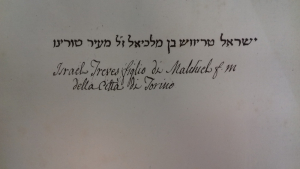 ישראל טריווש בן מלכיאל ז״ל מעיר טורינו
Israel Treves figlio di Malchiel f m
della Città di Torino